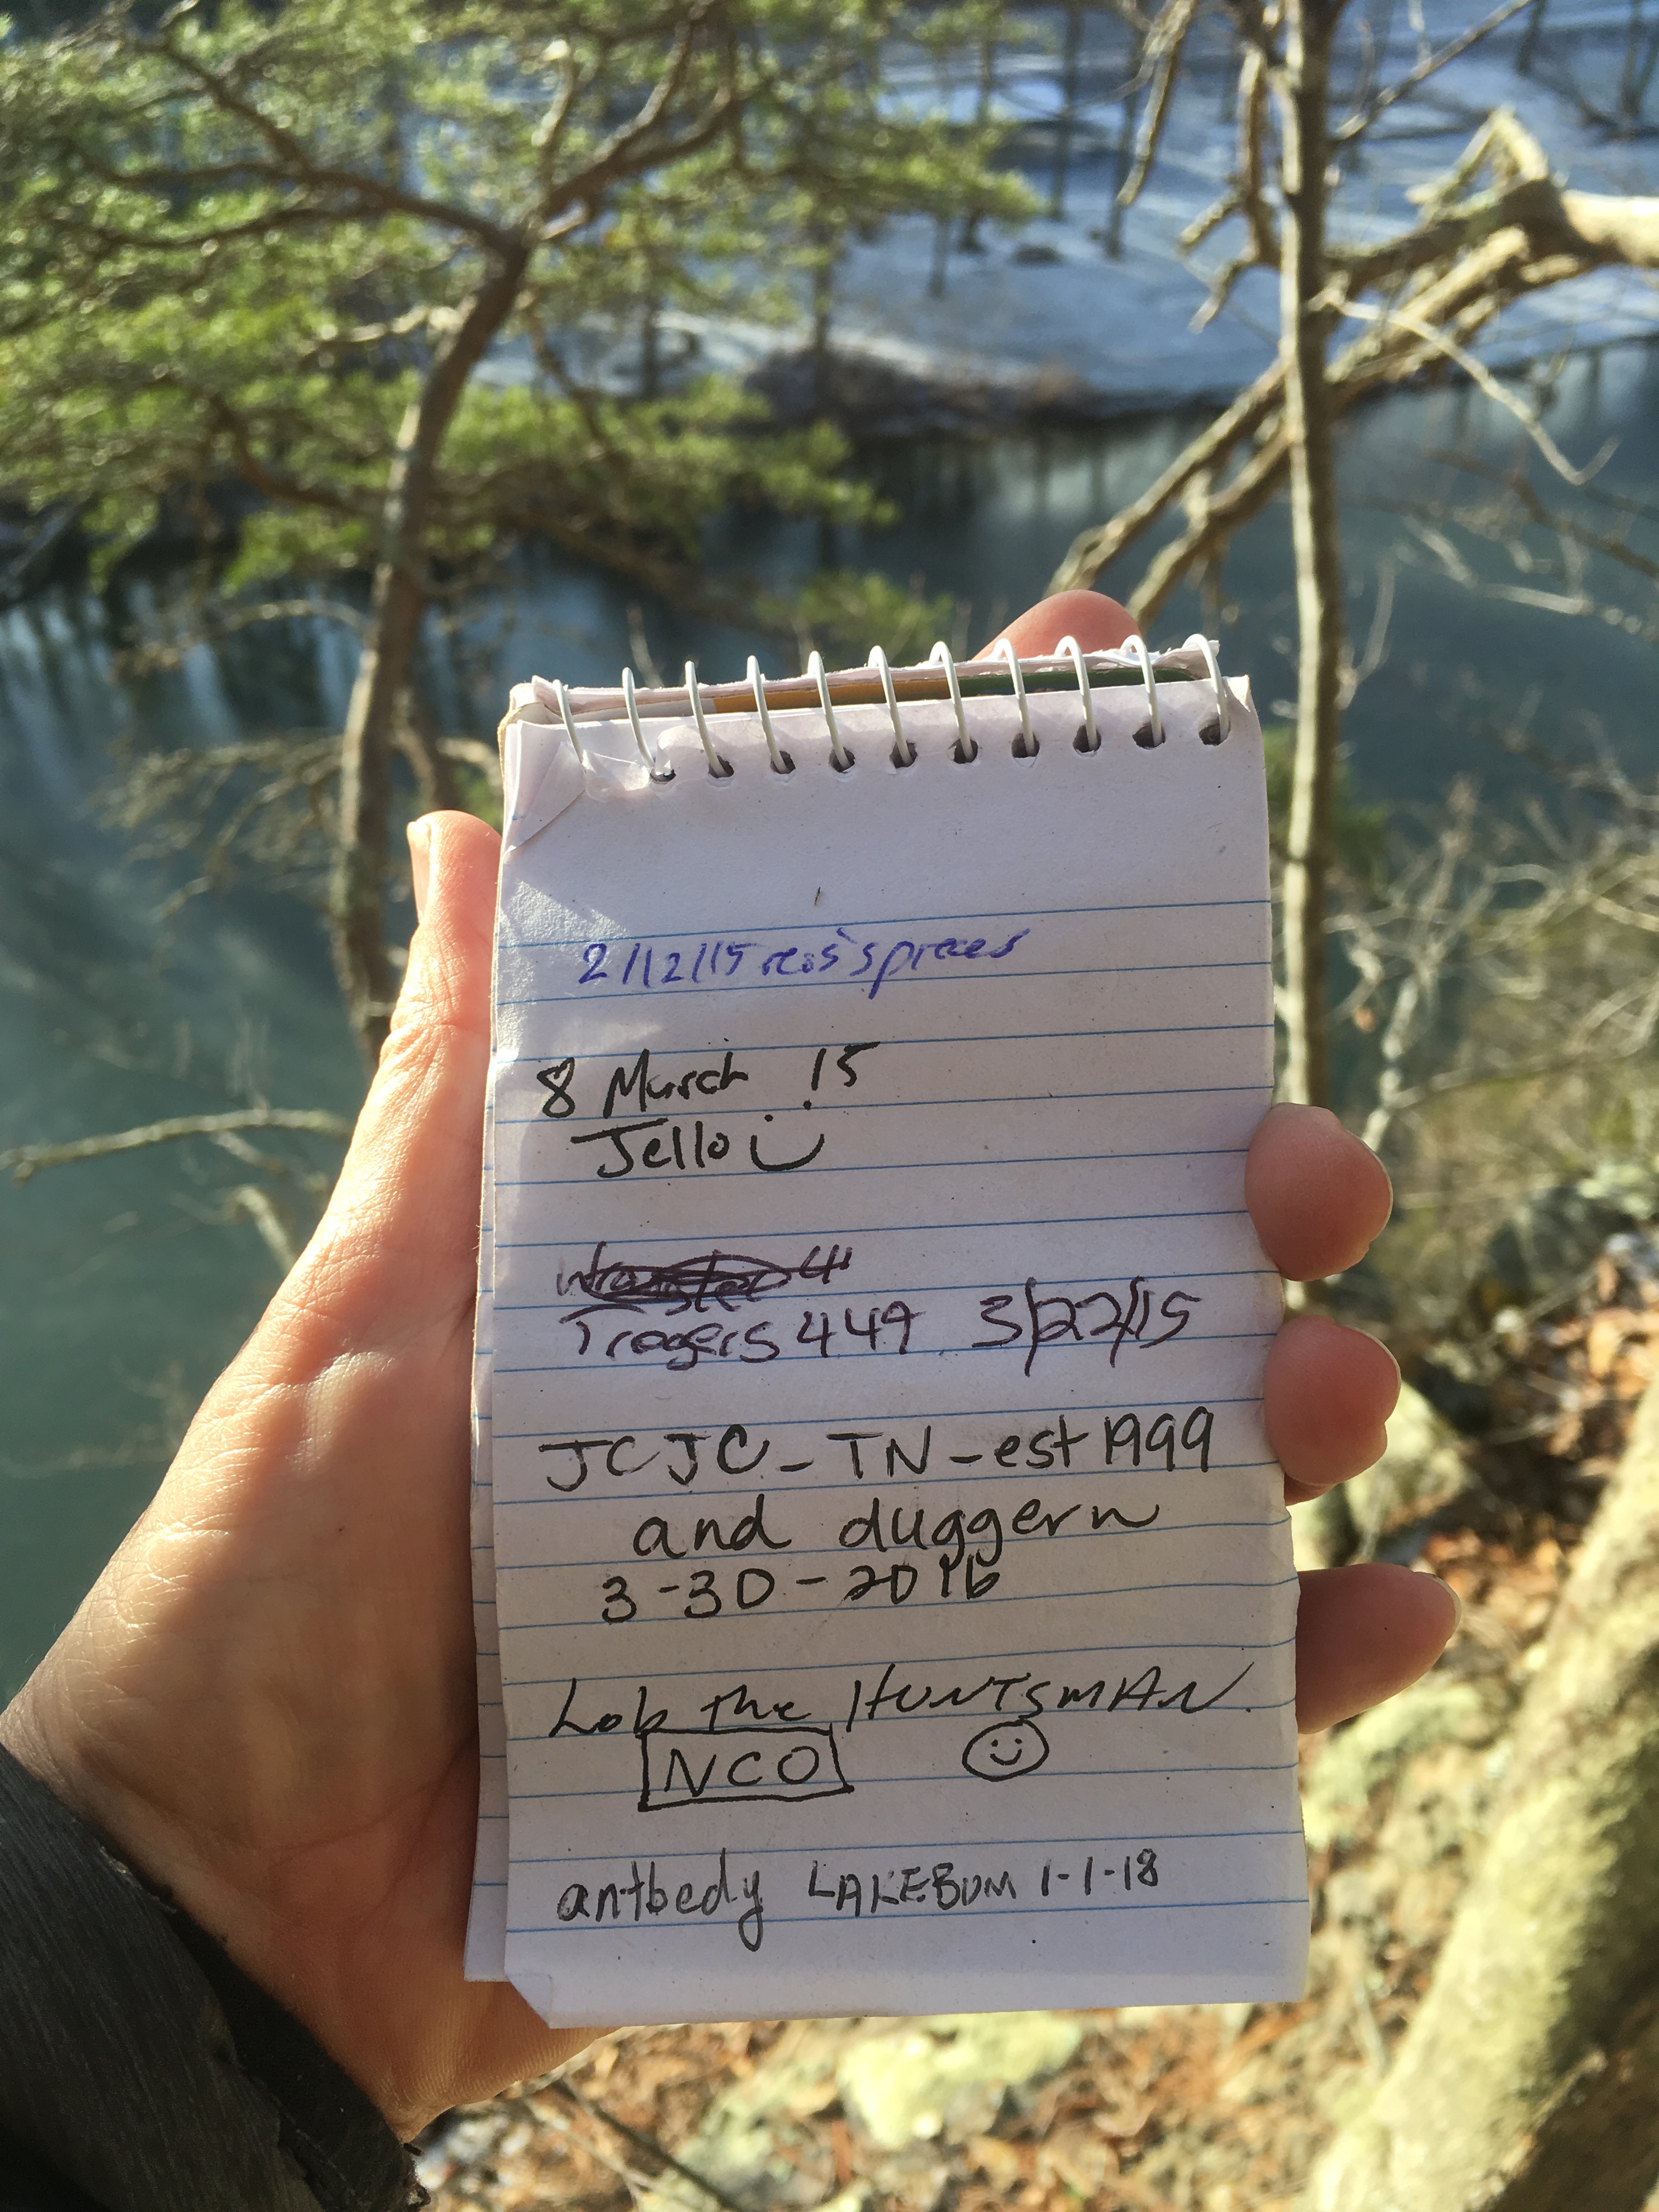 2/12/15 rees's pieces
8 March '15
Jello
Troegers 449 3/22/15
JCJC-TN-est1999
and duggern
3-30-2016
Lob the HUNTSMAN
NCO
antbedy LAKEBUM 1-1-18